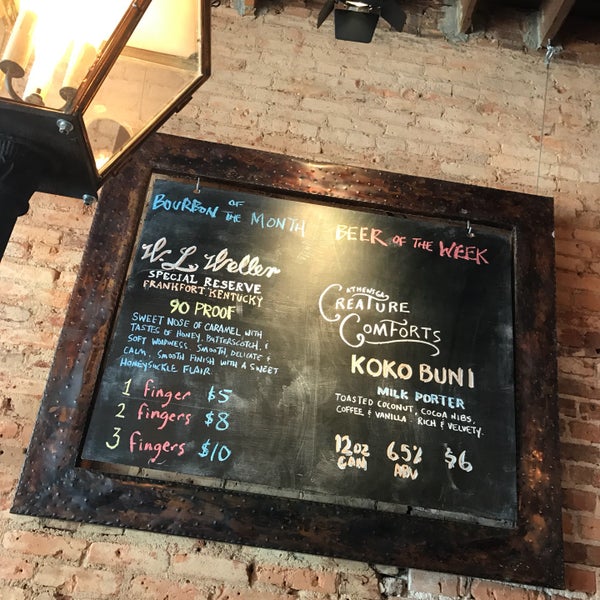 BOURBON OF THE MONTH
W.L. Weller
SPECIAL RESERVE
FRANKFORT, KENTUCKY
90 PROOF
SWEET NOSE OF CARAMEL WITH
TASTES OF HONEY, BUTTERSCOTCH, &
SOFT WOODNESS. SMOOTH, DELICATE &
CALM. SMOOTH FINISH WITH A SWEET
HONEYSUCKLE FLAIR.
1 finger $5
2 fingers $8
3 fingers $10
BEER OF THE WEEK
ATHENS, GA
CREATURE
COMFORTS
KOKO BUNI
MILK PORTER
TOASTED COCONUT, COCOA NIBS,
COFFEE & VANILLA. RICH & VELVETY.
12OZ 6.5% $6
CAN ABV